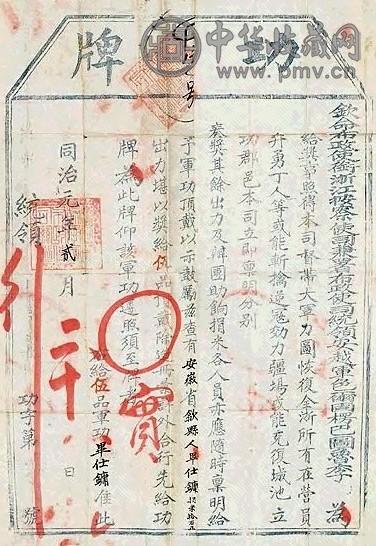 功牌
欽命布政使銜浙江按察使司兼署布政使司統領安越軍色爾固楞巴圖魯李 為
給獎事照得本司督帶大軍力圖恢復全浙所有在營員
弁勇丁人等或能斬擒逆寇効力疆場或能克復城池立
功郡邑本司立即稟明分別
奏獎其餘出力及辦團助餉捐米各人員亦應隨時稟明給
予軍功頂戴以示鼓勵茲查有安徽省歙縣人畢仕鏞
出力堪以獎給伍品頂戴除造冊彙案外合行先給功
牌為此牌仰該軍功遵照須至牌者
右給伍品軍功畢仕鏞准此
同治元年貳月二十八日
統領
行
功字第 號
實
中华收藏网
www.pmv.cn